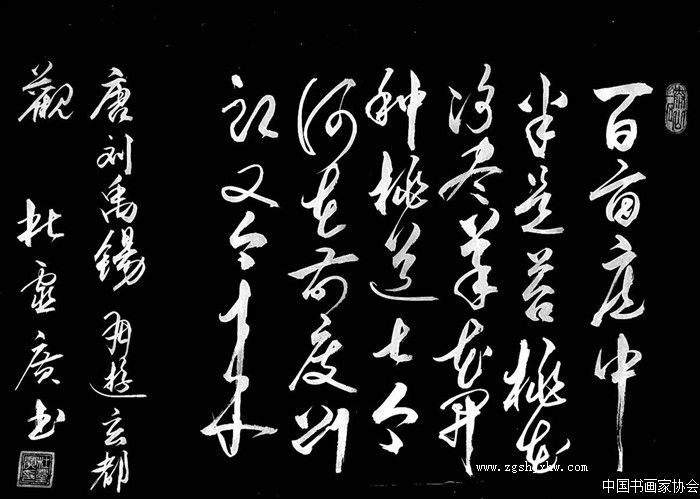 百亩庭中
半是苔桃花
净尽菜花开
种桃道士今
何在前度刘
郎又今来
唐刘禹锡 再游玄都
觀 杜 廣书
www.zgshjxhw.com
中国书画家协会